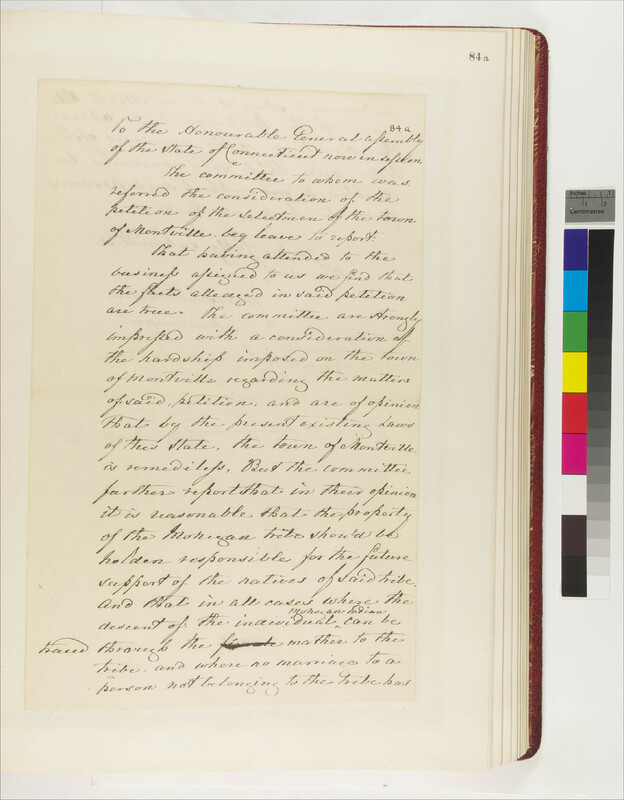 84a
84a
To the Honourable General assembly
of the State of Connecticut now in session
The committee to whom was
referred the consideration of the
petition of the Selectmen of the town
of Montville beg leave to report:
That having attended to the
business assigned to us we find that
the facts alledged in said petition
are true. The committee are strongly
impressed with a consideration of
the hardship imposed on the town
of Montville regarding the matters
of said petition, and are of opinion
that by the present existing Laws
of this State, the town of Montville
is remediless, But the committee
farther report that in their opinion
it is reasonable that the property
of the Mohegan tribe should be
holden responsible for the future
support of the natives of said tribe.
And that in all cases where the
Mohegan Indian
descent of the individual can be
traced through the mother to the
tribe and where no marriage to a
person not belonging to the tribe has
Inches
1
2
Centimetres